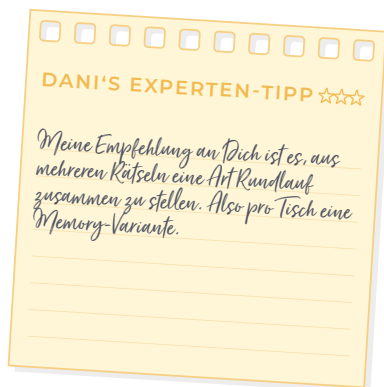 DANI‘S EXPERTEN-TIPP
Meine Empfehlung an Dich ist es, aus
mehreren Rätseln eine Art Rundlauf
zusammen zu stellen. Also pro Tisch eine
Memory-Variante.